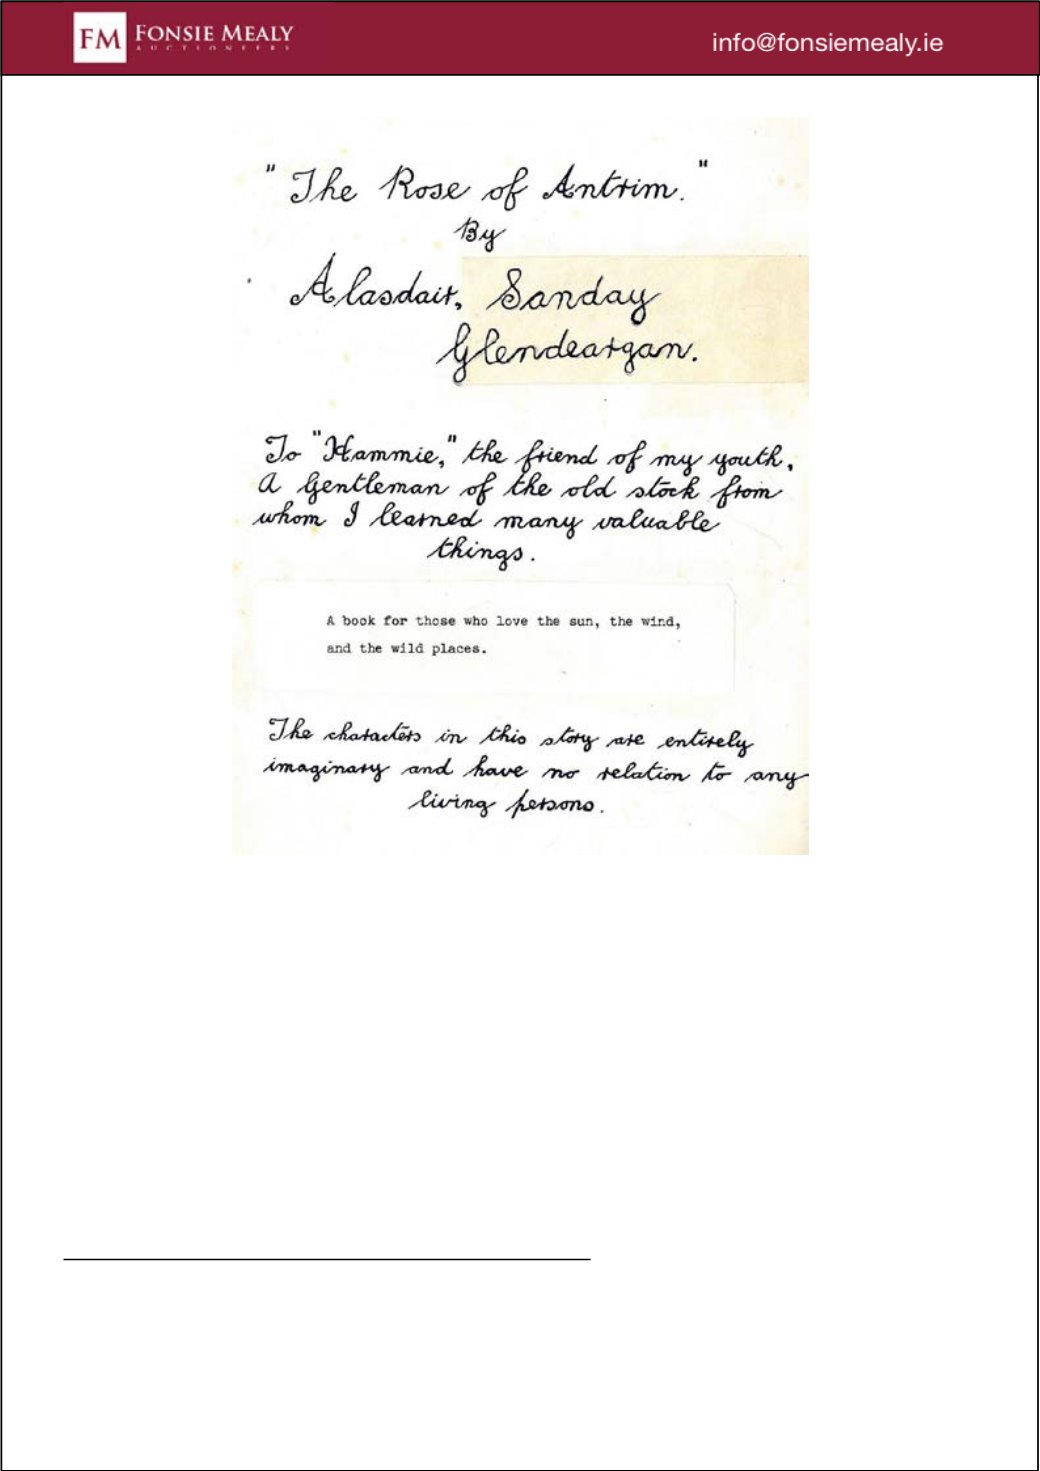 FM FONSIE MEALY
AUCTIONEERS
info@fonsiemealy.ie
"The Rose of Antrim."
By
Alasdair, Sanday
Glendeargan.
To "Hammie," the friend of my youth,
A Gentleman of the old stock from
whom I learned many valuable
things.
A book for those who love the sun, the wind,
and the wild places.
The characters in this story are entirely
imaginary and have no relation to any
living persons.